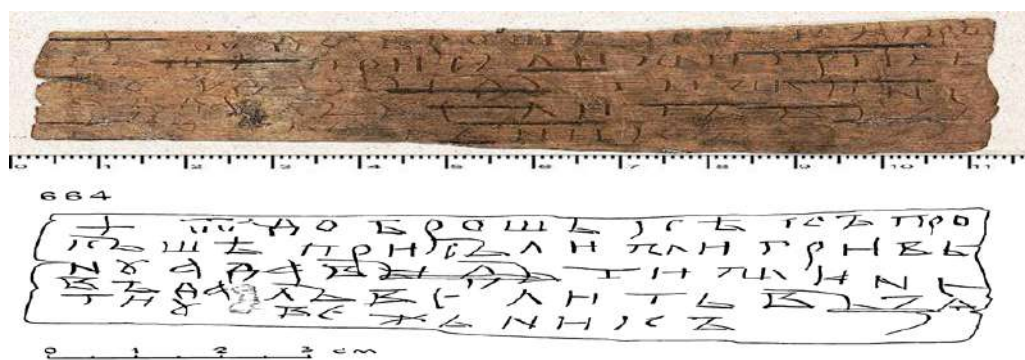 0 1 2 3 4 5 6 7 8 9 10 11
664
+ ѿ доброшькѣ къ про
къшѣ присъли ми гривь
нꙋ а давыдъ ти ми нь
въдалъ велить възѧ
ти ꙋ вежьникъ
0 1 2 3 cm